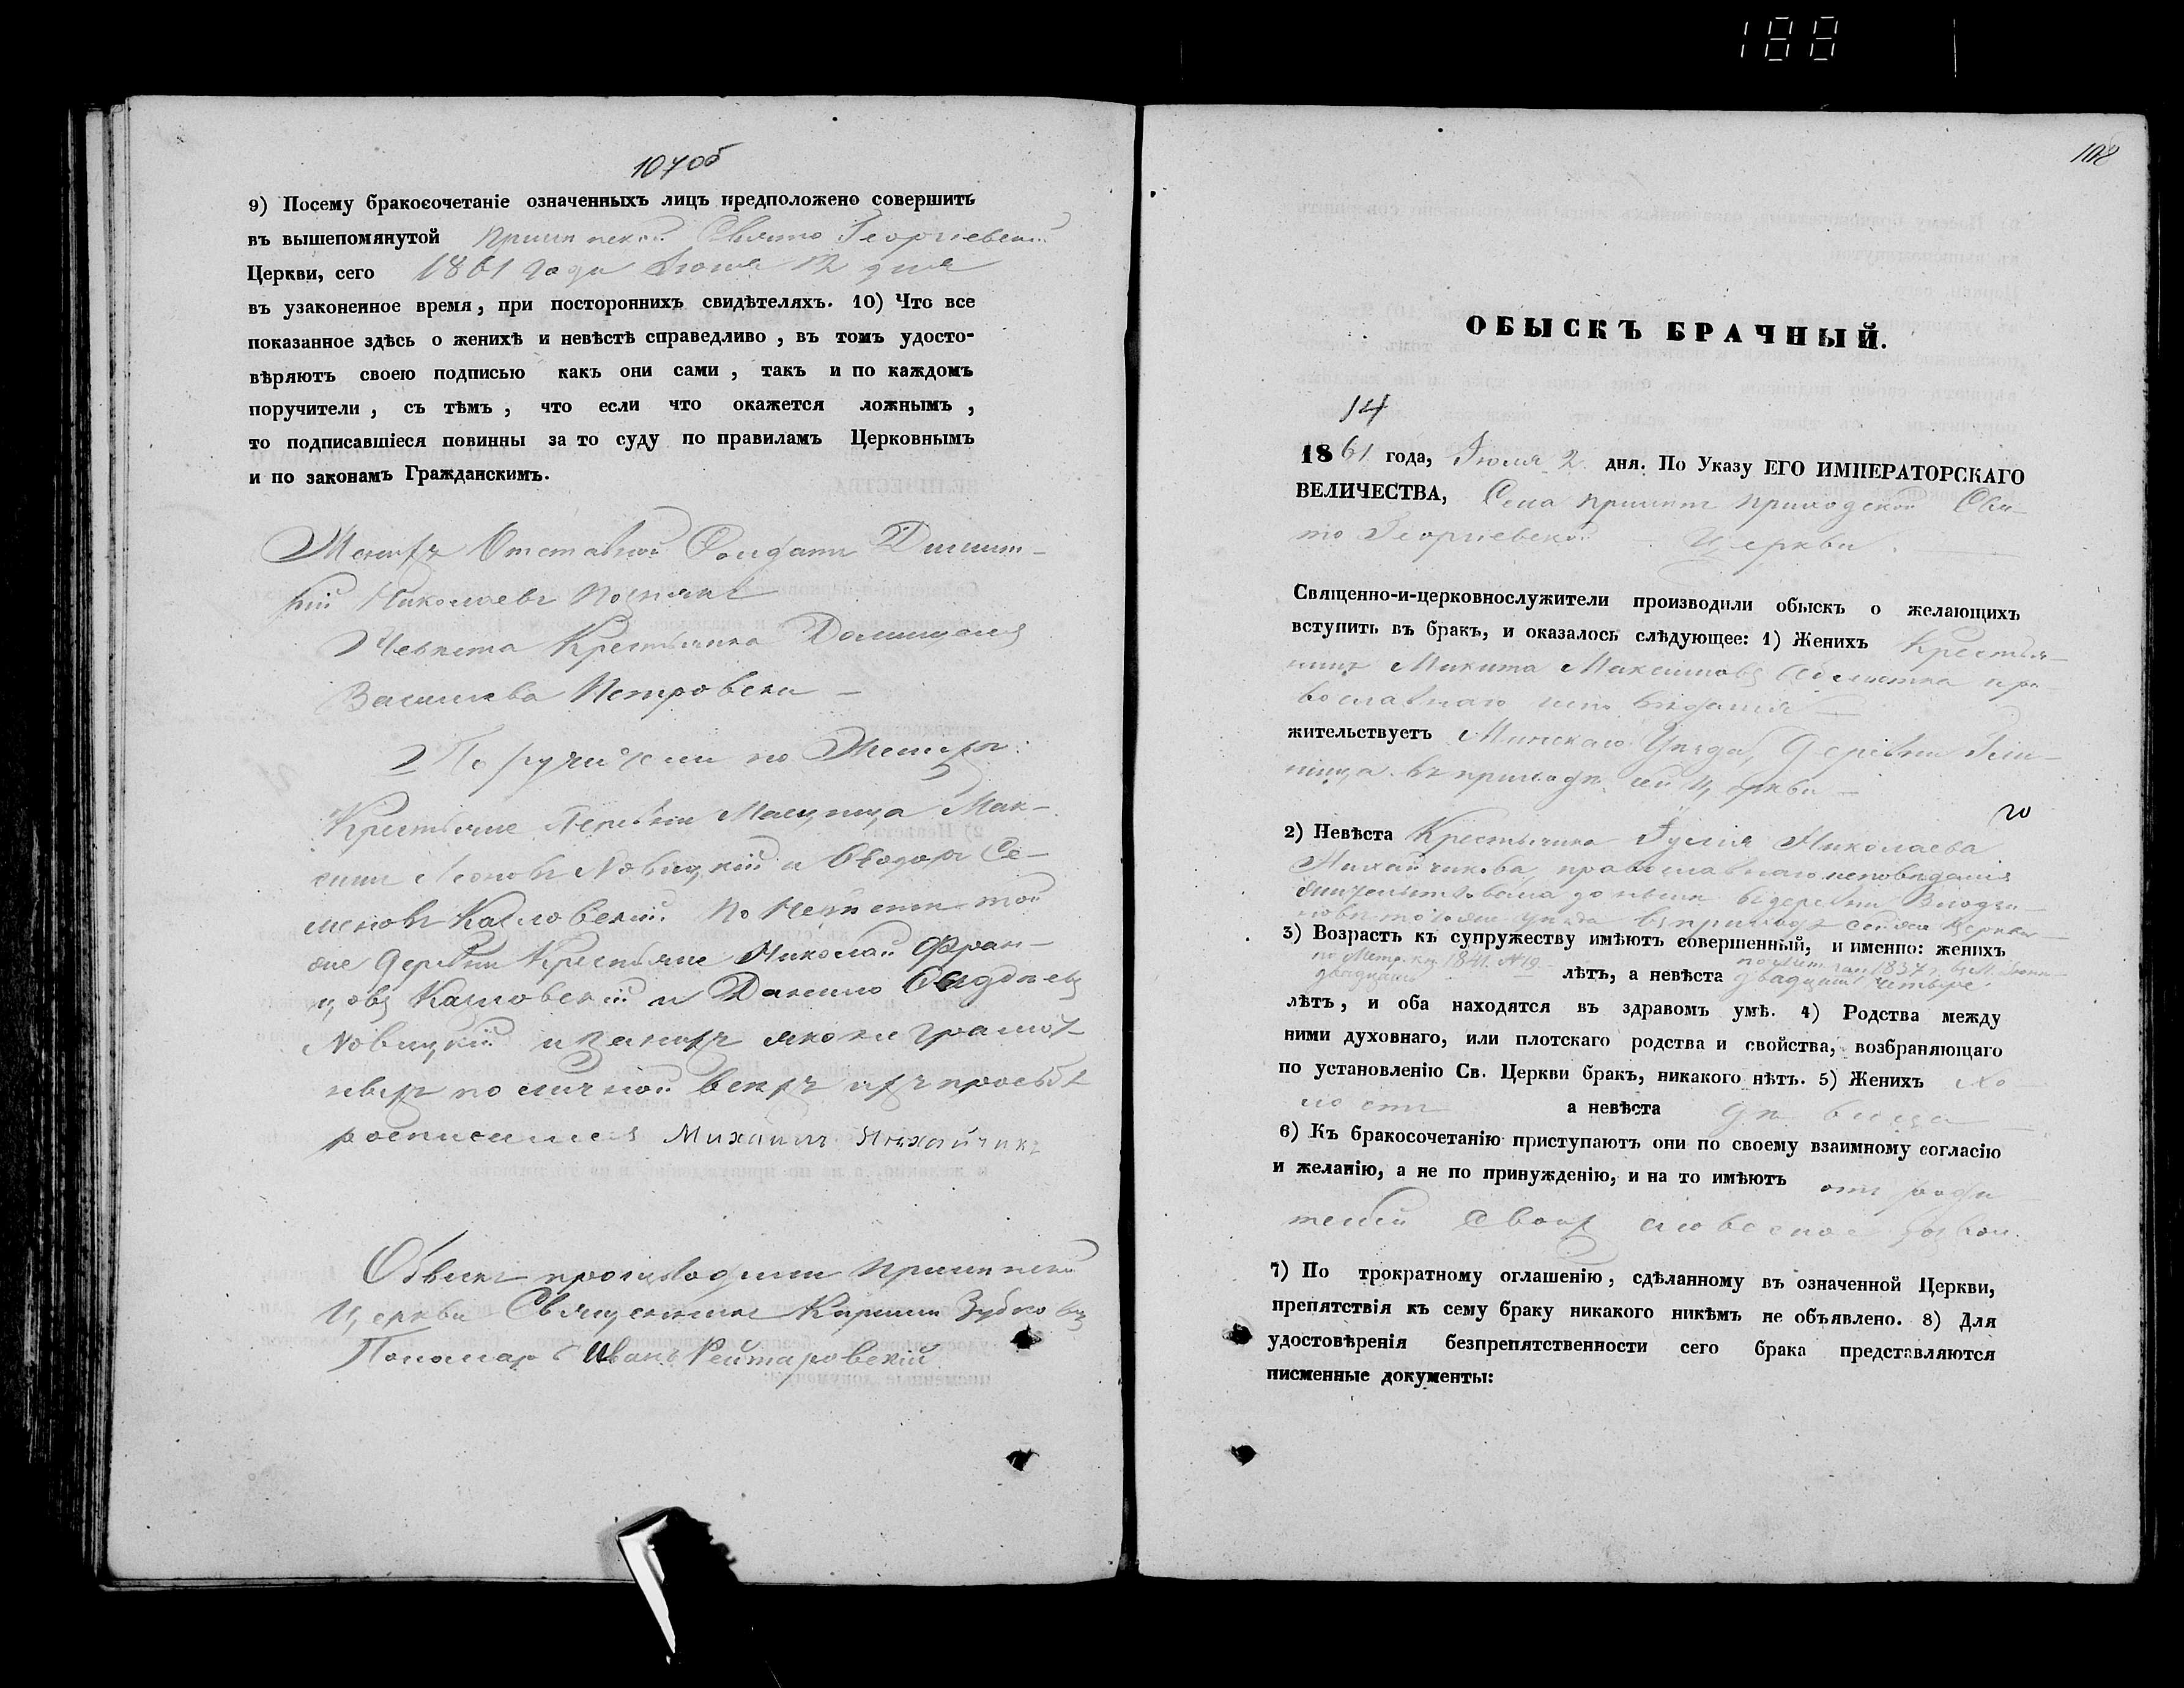 188
107об
9) Посему бракосочетаніе означенныхъ лицъ предположено совершить
въ вышепомянутой Свято Георгіевской
Церкви, сего 1861 года дня
въ узаконенное время, при постороннихъ свидѣтеляхъ. 10) Что все
показанное здѣсь о женихѣ и невѣстѣ справедливо, въ томъ удосто-
вѣряютъ своею подписью какъ они сами, такъ и по каждомъ
поручители, съ тѣмъ, что если что окажется ложнымъ,
то подписавшіеся повинны за то суду по правиламъ Церковнымъ
и по законамъ Гражданскимъ.
Женихъ Отставной Солдатъ Димит-
рій Николаевъ
Невѣста Крестьянка
Васильева Петровска
Поручители по Женихѣ:
Крестьяне Деревни Мак-
симъ Леоновъ Новицкій и Ѳеодоръ Се-
меновъ Козловскій. По Невѣстѣ той
же деревни Крестьяне Николай Фран-
цовъ Козловскій и Данило
Новицкій а грамот
по личной ихъ просьбѣ
росписался Михаилъ Михайчикъ
Обыскъ производили
Церкви Священникъ Зубковъ
Пономарь Иванъ Рейтаровскій
108
ОБЫСКЪ БРАЧНЫЙ.
14
1861 года, Іюля 2 дня. По Указу ЕГО ИМПЕРАТОРСКАГО
ВЕЛИЧЕСТВА, Села приходской Свя-
то Георгіевской Церкви.
Священно-и-церковнослужители производили обыскъ о желающихъ
вступить въ бракъ, и оказалось слѣдующее: 1) Женихъ Крестья-
нинъ Никита Максимовъ пра-
вославнаго исповѣданія
жительствуетъ Минскаго Уѣзда, Деревни
въ приходѣ сей Церкви
20
2) Невѣста Крестьянка Юлія Николаева
Михайчикова православнаго исповѣданія
жительствовала до нынѣ въ деревни
того же уѣзда въ приходѣ сей же Церкви
3) Возрастъ къ супружеству имѣютъ совершенный, и именно: женихъ
по Метр. кн. 1841. №19 по Мет. 1837 г.
двадцать лѣтъ, а невѣста двадцать четыре
лѣтъ, и оба находятся въ здравомъ умѣ. 4) Родства между
ними духовнаго, или плотскаго родства и свойства, возбраняющаго
по установленію Св. Церкви бракъ, никакого нѣтъ. 5) Женихъ хо-
лостъ а невѣста дѣвица
6) Къ бракосочетанію приступаютъ они по своему взаимному согласію
и желанію, а не по принужденію, и на то имѣютъ отъ роди-
телей своихъ словесное
7) По трократному оглашенію, сдѣланному въ означенной Церкви,
препятствія къ сему браку никакого никѣмъ не объявлено. 8) Для
удостовѣренія безпрепятственности сего брака представляются
писменные документы: